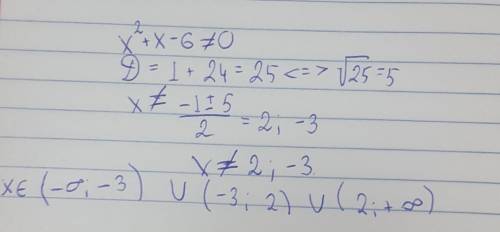 x²+x-6≠0
D = 1 + 24 = 25 <=> √25 = 5
x ≠ (-1±5)/2 = 2; -3
x ≠ 2; -3
x∈ (-∞; -3) ∪ (-3; 2) ∪ (2; +∞)